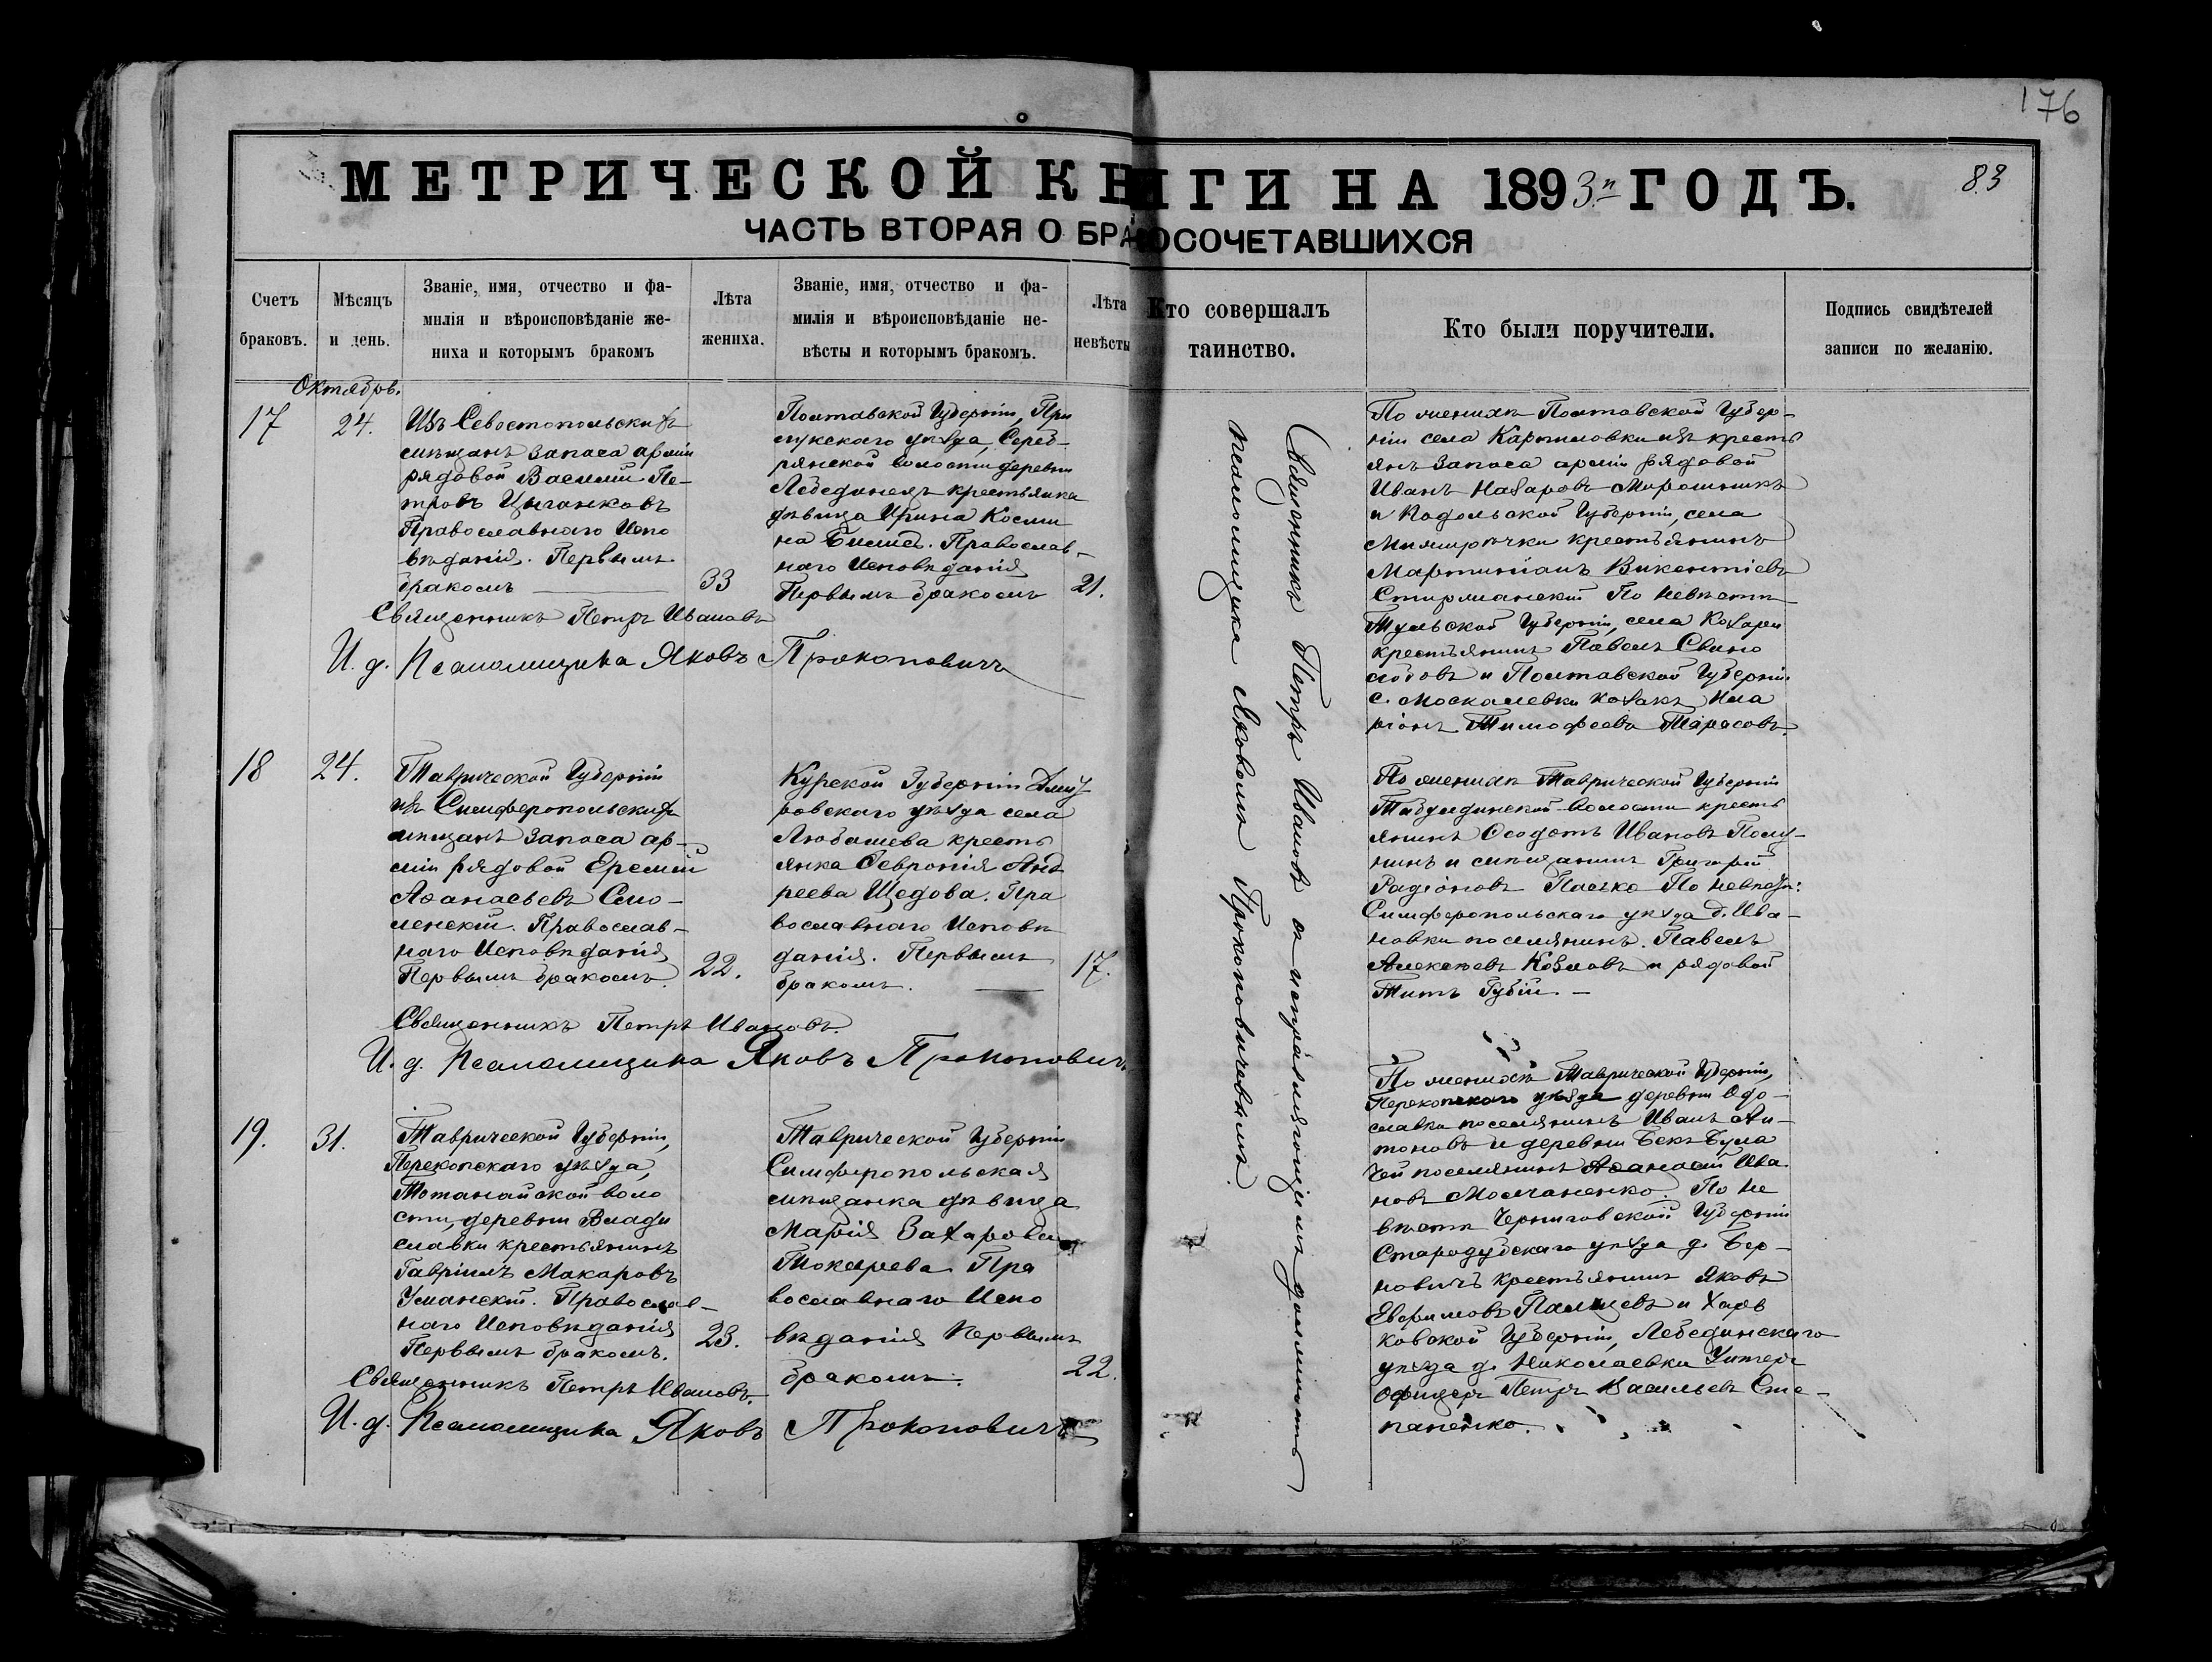 176
83
МЕТРИЧЕСКОЙ КНИГИ НА 1893й ГОДЪ.
ЧАСТЬ ВТОРАЯ О БРАКОСОЧЕТАВШИХСЯ
Счетъ браковъ.
Мѣсяцъ и день.
Званіе, имя, отчество и фа-
милія и вѣроисповѣданіе же-
ниха и которымъ бракомъ
Лѣта жениха.
Званіе, имя, отчество и фа-
милія и вѣроисповѣданіе не-
вѣсты и которымъ бракомъ.
Лѣта невѣсты
Кто совершалъ
таинство.
Кто были поручители.
Подпись свидѣтелей
записи по желанію.
Октябрь.
17
24.
Изъ Севостопольскихъ
мѣщанъ запаса арміи
рядовой Василій Пе-
тровъ Цыганковъ
Православнаго Испо
вѣданія. Первымъ
бракомъ
33
Полтавской Губерніи, При
лукскаго уѣзда, Сереб-
рянской волости деревни
Лебединецъ крестьянка
дѣвица Ирина Косми
на Православ-
наго Исповѣданія
Первымъ бракомъ
21.
Священникъ Петръ Ивановъ
И. д. Псаломщика Яковъ Прокоповичъ
Священникъ Петръ Ивановъ съ исправляющимъ должность
псаломщика Яковомъ Прокоповичевымъ.
По женихѣ Полтавской Губер-
ніи села Карпиловки изъ кресть
янъ запаса арміи рядовой
Иванъ Назаровъ Мирошникъ
и Подольской Губерніи, села
крестьянинъ
Мартиніанъ Викентіевъ
По невѣстѣ
Тульской Губерніи, села
крестьянинъ Павелъ Свино
и Полтавской Губерніи
с. Москалевки козакъ Ила
ріонъ Тимофеевъ Тарасовъ.
18
24.
Таврической Губерніи
изъ Симферопольскихъ
мѣщанъ запаса ар-
міи рядовой Еремій
Аѳанасьевъ Смо-
ленскій. Православ-
наго Исповѣданія
Первымъ бракомъ.
22.
Курской Губерніи Дмит
ровскаго уѣзда села
Любашева кресть
янка Февронія Анд
реева Шедова. Пра
вославнаго Исповѣ
данія. Первымъ
бракомъ.
17.
Священникъ Петръ Ивановъ.
И. д. Псаломщика Яковъ Прокоповичъ
По женихѣ Таврической Губерніи
Табулдинской волости кресть
янинъ Ѳеодотъ Ивановъ Полу-
нинъ и мѣщанинъ Григорій
Радіоновъ Пасько По невѣстѣ:
Симферопольскаго уѣзда д. Ива-
новки поселянинъ Павелъ
Алексѣевъ Козловъ и рядовой
Титъ Губій.
19.
31.
Таврической Губерніи,
Перекопскаго уѣзда,
Тотанайской воло
сти, деревни Влади
славки крестьянинъ
Гавріилъ Макаровъ
Усманскій. Православ-
наго Исповѣданія
Первымъ бракомъ.
23.
Таврической Губерніи
Симферопольская
мѣщанка дѣвица
Марія Захарова
Токарева. Пра
вославнаго Испо
вѣданія Первымъ
бракомъ.
22.
Священникъ Петръ Ивановъ.
И. д. Псаломщика Яковъ Прокоповичъ
По женихѣ Таврической Губерніи,
Перекопскаго уѣзда деревни Ѳдо-
славки поселянинъ Иванъ Ан-
тоновъ и деревни Бекъ Була
чи поселянинъ Аѳанасій Ива
новъ Молчаненко. По не
вѣстѣ Черниговской Губерніи
Стародубскаго уѣзда д. Бер-
новичъ крестьянинъ Яковъ
Евфимовъ и Харь
ковской Губерніи, Лебединскаго
уѣзда д. Николаевки Унтеръ
офицеръ Петръ Васильевъ Сте-
паненко.